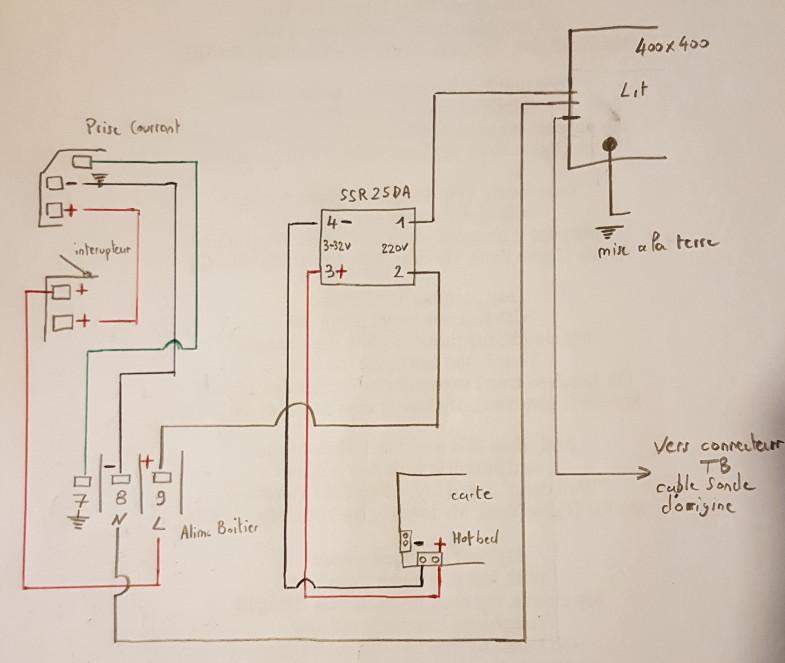 400x400
Lit
Prise Courrant
-
+
interupteur
+
+
SSR 25DA
4 - 1
3-32V 220V
3+ 2
mise a la terre
- +
7 8 9
N L
Alim Boitier
carte
- + Hotbed
Vers connecteur
TB
cable Sonde
d'origine